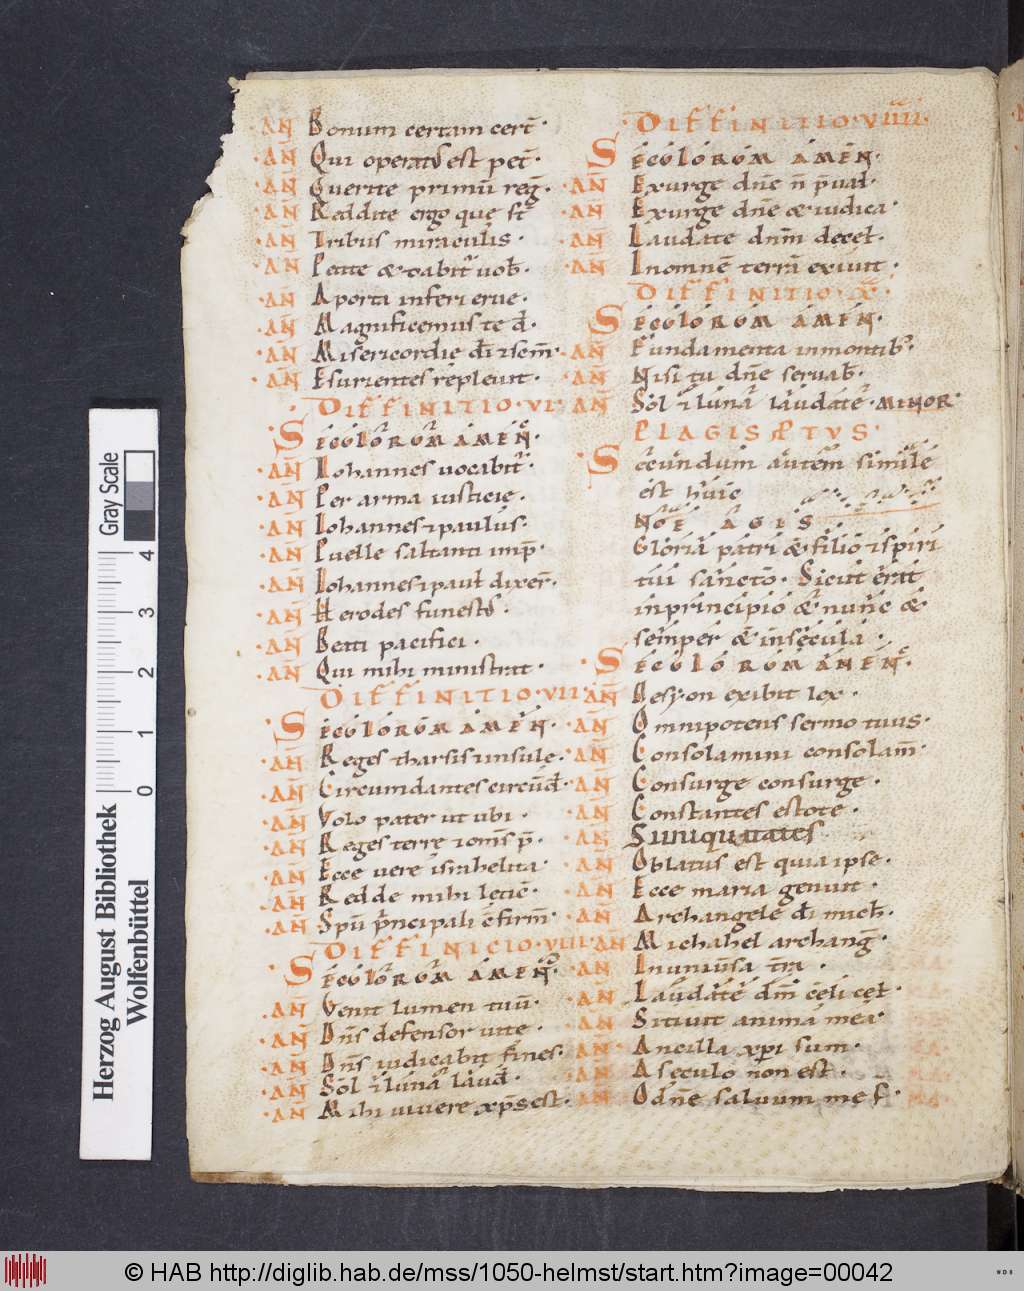 AÑ Bonum certam cert̄·
AÑ Qui operatus est pet̄·
AÑ Querite primū reḡ·
AÑ Reddite ergo que st̄
AÑ Tribus miraculis·
AÑ Petite & dabit᷑ uob̄·
AÑ A porta inferi erue·
AÑ Magnificemus te d̄·
AÑ Misericordie dī ⁊sem̄·
AÑ Esurientes repleuit·
DIFFINITIO·VI·
SECULORUM AMEN·
AÑ Iohannes uocabit᷑·
AÑ Per arma iusticię·
AÑ Iohannes ⁊ paulus·
AÑ Puelle saltanti imp̄·
AÑ Iohannes ⁊ paul̄ dixer̄·
AÑ Herodes funestus·
AÑ Beati pacifici·
AÑ Qui mihi ministrat·
DIFFINITIO·VII·
SECULORUM AMEN·
AÑ Reges tharsis ⁊ insule·
AÑ Circumdantes circūd̄·
AÑ Volo pater ut ubi·
AÑ Reges terrę ⁊ om̄s p̄·
AÑ Ecce uere israhelita·
AÑ Redde mihi leticiē·
AÑ Spū p̄ncipali cfirm̄·
DIFFINICIO·VIII·
SECULORUM AMEN·
AÑ Venit lumen tuū·
AÑ Dn̄s defensor uite·
AÑ Dn̄s iudicabit fines·
AÑ Sol ⁊ luna laud̄·
AÑ Mihi uiuere xp̄s est·
DIFFINITIO·VIIII·
SECULORUM AMEN·
AÑ Exurge dn̄e n̄ p̄ual̄·
AÑ Exurge dn̄e & iudica·
AÑ Laudate dnm̄ decel̄·
AÑ In omnē terrā exiuit·
DIFFINITIO·X·
SECULORUM AMEN·
AÑ Fundamenta in montib᷑·
AÑ Nisi tu dn̄e seruab̄·
AÑ Sol ⁊ luna laudate·MINOR·
PLAGIS PTVS·
Secundum autem simile
est huic
NOE AGIS
Gloria patri & filio ⁊ spiri
tui sancto· Sicut erat
in principio & nunc &
semper & in secula·
SECULORUM AMEN·
AÑ De syon exibit lex·
AÑ Omnipotens sermo tuus·
AÑ Consolamini consolam̄·
AÑ Consurge consurge·
AÑ Constantes estote·
AÑ
AÑ Oblatus est quia ipse·
AÑ Ecce maria genuit·
AÑ Archangele dī mich̄·
AÑ Michahel archang̅·
AÑ In uniu̅sa t̄ra·
AÑ Laudate dm̄ celi cel̄·
AÑ Sitiuit anima mea·
AÑ Ancilla xp̄i sum·
AÑ A seculo non est·
AÑ O dn̄e saluum me f·
Herzog August Bibliothek
Wolfenbüttel
Gray Scale
0 1 2 3 4
© HAB http://diglib.hab.de/mss/1050-helmst/start.htm?image=00042